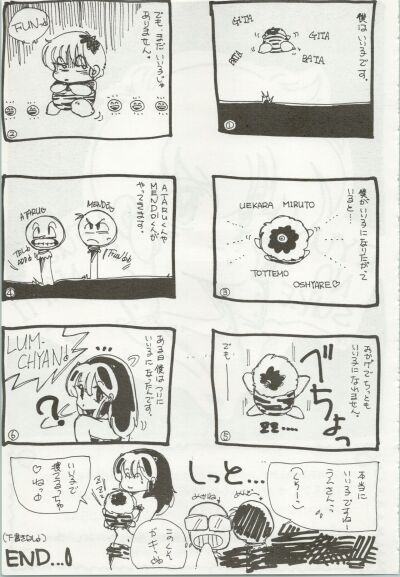 僕はいい子です。
GITA
GITA
BATA
BATA
①
でも、まだいい子じゃ
ありません。
FUN…
②
僕がいい子になりたがって
いると…
UEKARA MIRUTO
TOTTEMO
OSHYARE♡
③
ATARUくんや
MENDOくんが
やってきます。
ATARU
MENDO
④
おかげでちっとも
いい子になれません。
でも
べちょっ
ZZ……
⑤
ある日僕はついに
いい子になったんです。
LUM-
CHYAN
?
⑥
しっと…
本当に
いい子ですねー
ラムさん、
いい子で
ねゆ
このくそ
ガキ
END…!